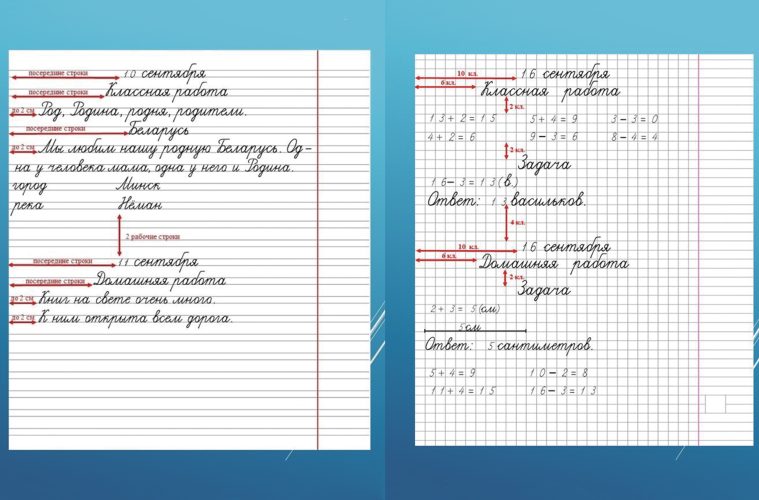 посередине строки 10 сентября
посередине строки Классная работа
до 2 см Род, Родина, родня, родители.
посередине строки Беларусь
до 2 см Мы любим нашу родную Беларусь. Од-
на у человека мама, одна у него и Родина.
город Минск
река Нёман
2 рабочие строки
посередине строки 11 сентября
посередине строки Домашняя работа
до 2 см Книг на свете очень много.
до 2 см К ним открыта всем дорога.
10 кл. 16 сентября
6 кл. Классная работа
2 кл.
13+2=15 5+4=9 3-3=0
4+2=6 9-3=6 8-4=4
2 кл.
Задача
16-3=13(в.)
Ответ: 13 васильков.
4 кл.
10 кл. 16 сентября
6 кл. Домашняя работа
2 кл.
Задача
2+3=5(см)
5см
Ответ: 5 сантиметров.
5+4=9 10-2=8
11+4=15 16-3=13